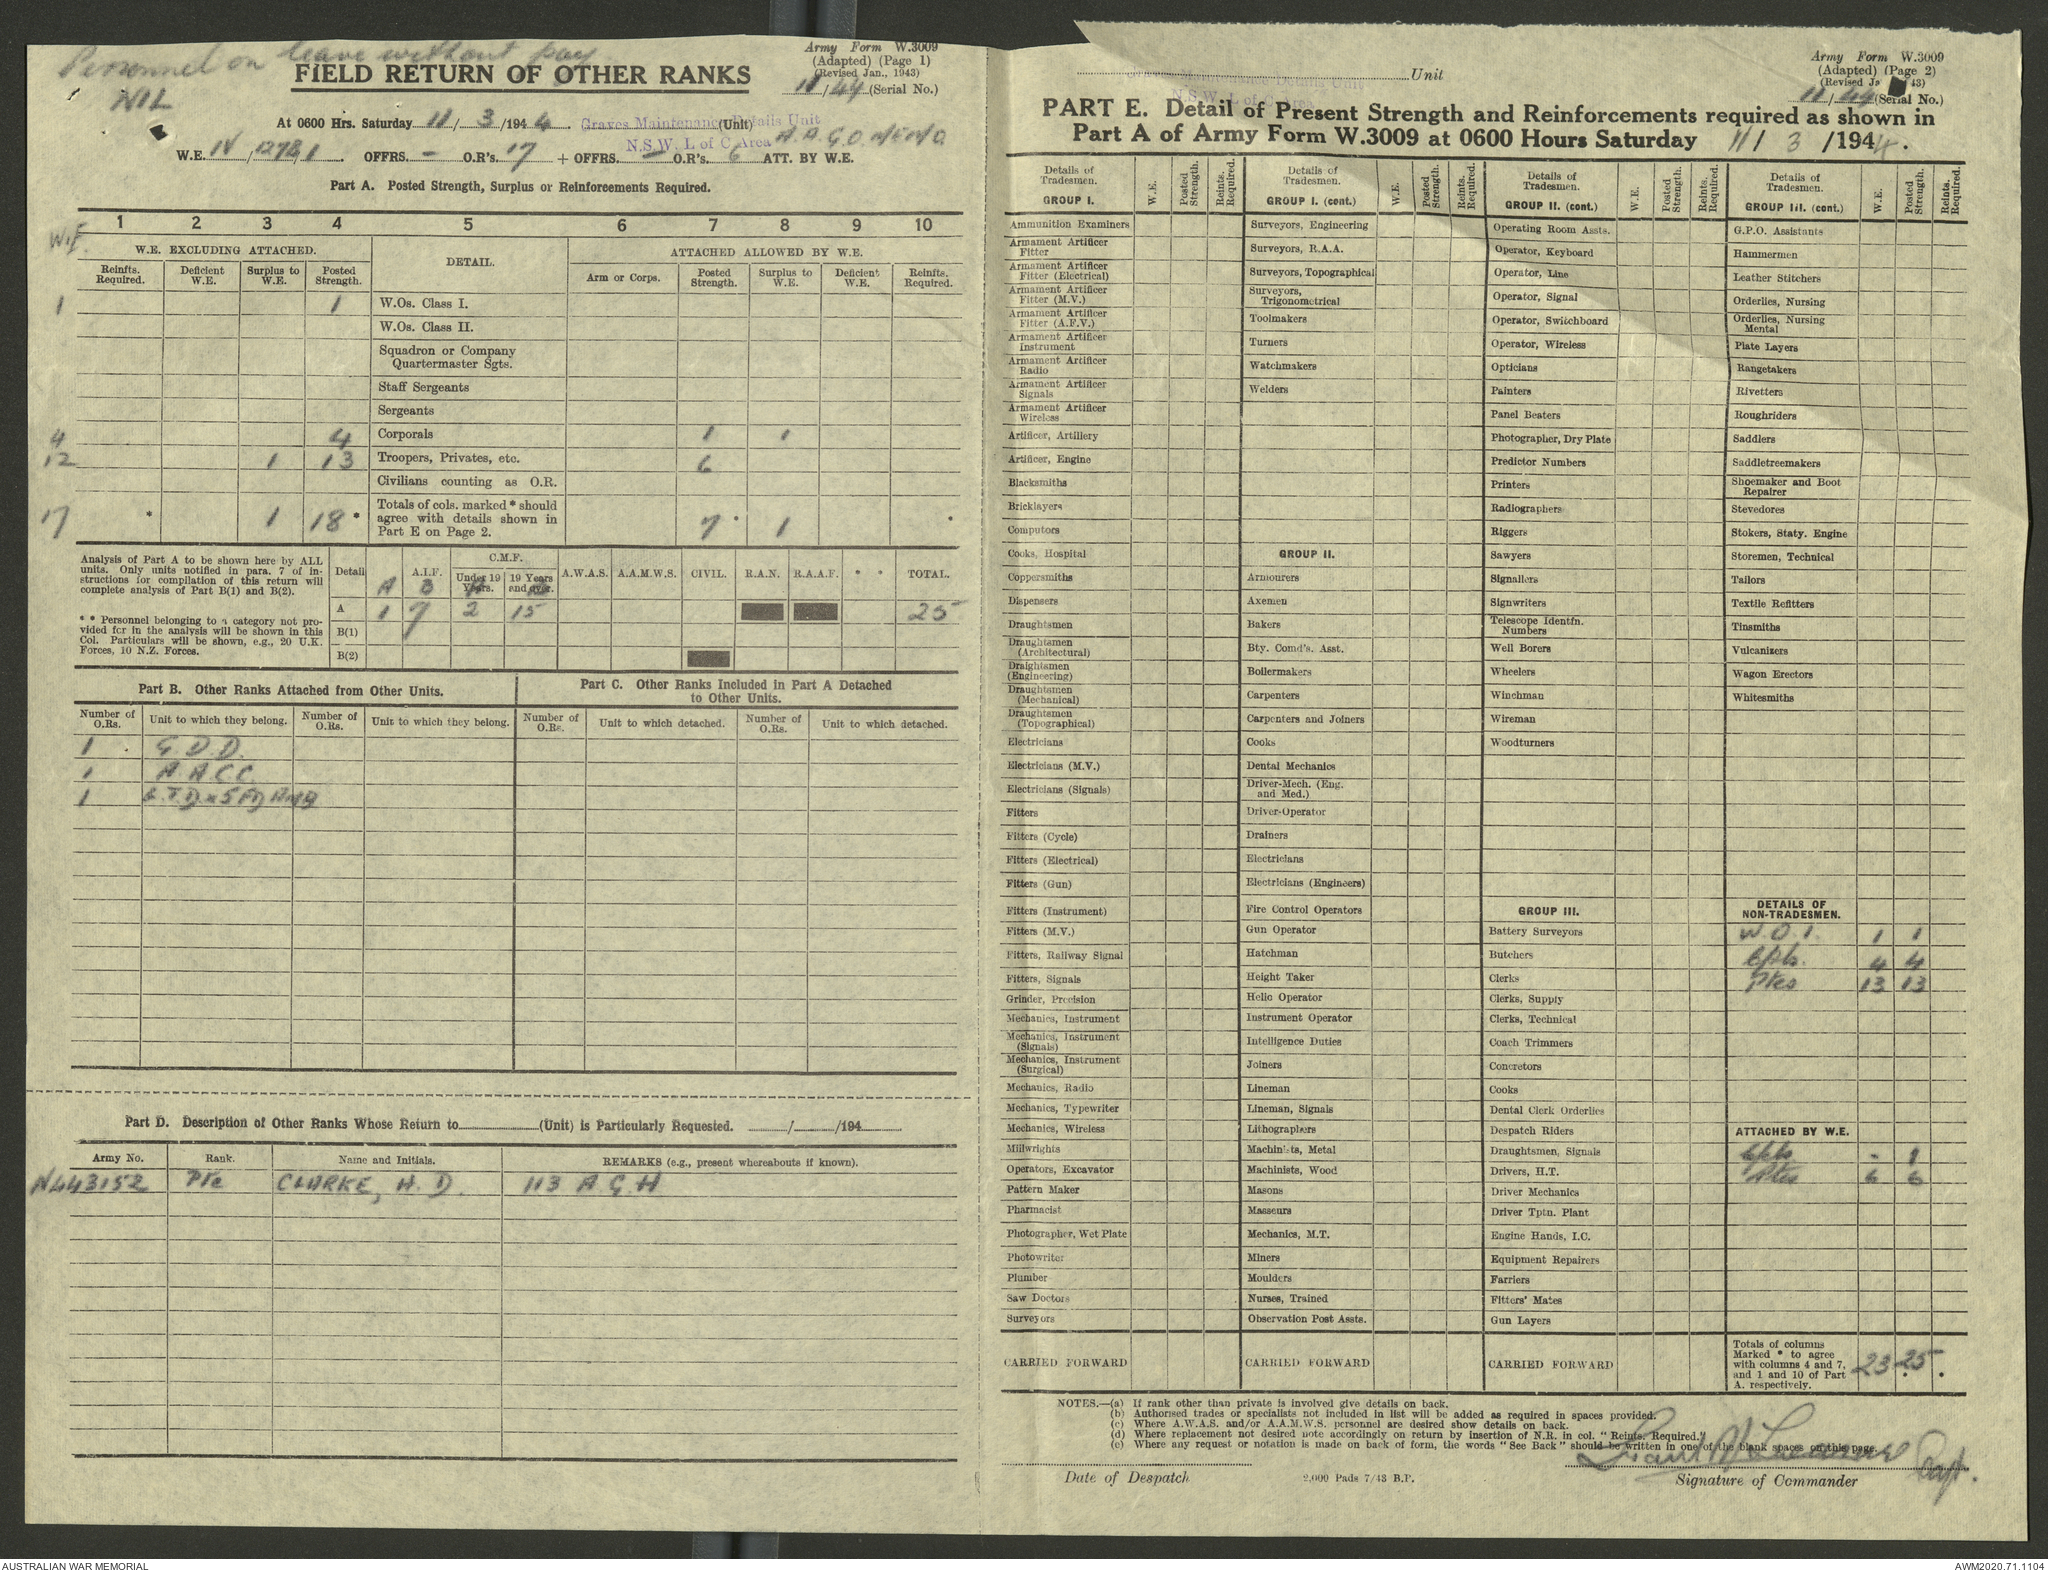 Personnel on leave without pay
NIL
Army Form W.3009
(Adapted) (Page 1)
(Revised Jan., 1943)
11/44 (Serial No.)
FIELD RETURN OF OTHER RANKS
At 0600 Hrs. Saturday 11/3/1944. Graves Maintenance Details Unit (Unit)
N.S.W. L of C Area
W.E. IV/1278/1. OFFRS. – O.R's. 17 + OFFRS. – O.R's. 6 ATT. BY W.E.
Part A. Posted Strength, Surplus or Reinforcements Required.
1 2 3 4 5 6 7 8 9 10
W.E.
W.E. EXCLUDING ATTACHED. DETAIL. ATTACHED ALLOWED BY W.E.
Reinfts. Required. Deficient W.E. Surplus to W.E. Posted Strength. Arm or Corps. Posted Strength. Surplus to W.E. Deficient W.E. Reinfts. Required.
1 1 W.Os. Class I.
W.Os. Class II.
Squadron or Company
Quartermaster Sgts.
Staff Sergeants
Sergeants
4 4 Corporals 1 1
12 1 13 Troopers, Privates, etc. 6
Civilians counting as O.R.
17 * 1 18 * Totals of cols. marked * should agree with details shown in Part E on Page 2. 7 * 1 *
Analysis of Part A to be shown here by ALL
units. Only units notified in para. 7 of in-
structions for compilation of this return will
complete analysis of Part B(1) and B(2).
* * Personnel belonging to a category not pro-
vided for in the analysis will be shown in this
Col. Particulars will be shown, e.g., 20 U.K.
Forces, 10 N.Z. Forces.
Detail A.I.F. C.M.F. Under 19 Years. 19 Years and over. A.W.A.S. A.A.M.W.S. CIVIL. R.A.N. R.A.A.F. * * TOTAL.
A B A B
A 1 7 2 15 25
B(1)
B(2)
Part B. Other Ranks Attached from Other Units.
Number of O.Rs. Unit to which they belong. Number of O.Rs. Unit to which they belong.
1 G.D.D.
1 A.A.C.C.
1
Part C. Other Ranks Included in Part A Detached
to Other Units.
Number of O.Rs. Unit to which detached. Number of O.Rs. Unit to which detached.
Part D. Description of Other Ranks Whose Return to (Unit) is Particularly Requested. / /194
Army No. Rank. Name and Initials. REMARKS (e.g., present whereabouts if known).
N443152 Pte CLARKE, H. D. 113 A G H
Army Form W.3009
(Adapted) (Page 2)
(Revised Ja 43)
11/44 (Serial No.)
Unit
N.S.W. L of C Area
PART E. Detail of Present Strength and Reinforcements required as shown in
Part A of Army Form W.3009 at 0600 Hours Saturday 11/3/1944.
Details of Tradesmen. W.E. Posted Strength. Reints. Required.
GROUP I.
Ammunition Examiners
Armament Artificer
Fitter
Armament Artificer
Fitter (Electrical)
Armament Artificer
Fitter (M.V.)
Armament Artificer
Fitter (A.F.V.)
Armament Artificer
Instrument
Armament Artificer
Radio
Armament Artificer
Signals
Armament Artificer
Wireless
Artificer, Artillery
Artificer, Engine
Blacksmiths
Bricklayers
Computors
Cooks, Hospital
Coppersmiths
Dispensers
Draughtsmen
Draughtsmen
(Architectural)
Draightsmen
(Engineering)
Draughtsmen
(Mechanical)
Draughtsmen
(Topographical)
Electricians
Electricians (M.V.)
Electricians (Signals)
Fitters
Fitters (Cycle)
Fitters (Electrical)
Fitters (Gun)
Fitters (Instrument)
Fitters (M.V.)
Fitters, Railway Signal
Fitters, Signals
Grinder, Precision
Mechanics, Instrument
Mechanics, Instrument
(Signals)
Mechanics, Instrument
(Surgical)
Mechanics, Radio
Mechanics, Typewriter
Mechanics, Wireless
Millwrights
Operators, Excavator
Pattern Maker
Pharmacist
Photographer, Wet Plate
Photowriter
Plumber
Saw Doctors
Surveyors
CARRIED FORWARD
Details of Tradesmen. W.E. Posted Strength. Reints. Required.
GROUP I. (cont.)
Surveyors, Engineering
Surveyors, R.A.A.
Surveyors, Topographical
Surveyors,
Trigonometrical
Toolmakers
Turners
Watchmakers
Welders
GROUP II.
Armourers
Axemen
Bakers
Bty. Comd's. Asst.
Boilermakers
Carpenters
Carpenters and Joiners
Cooks
Dental Mechanics
Driver-Mech. (Eng.
and Med.)
Driver-Operator
Drainers
Electricians
Electricians (Engineers)
Fire Control Operators
Gun Operator
Hatchman
Height Taker
Helio Operator
Instrument Operator
Intelligence Duties
Joiners
Lineman
Lineman, Signals
Lithographers
Machinists, Metal
Machinists, Wood
Masons
Masseurs
Mechanics, M.T.
Miners
Moulders
Nurses, Trained
Observation Post Assts.
CARRIED FORWARD
Details of Tradesmen. W.E. Posted Strength. Reints. Required.
GROUP II. (cont.)
Operating Room Assts.
Operator, Keyboard
Operator, Line
Operator, Signal
Operator, Switchboard
Operator, Wireless
Opticians
Painters
Panel Beaters
Photographer, Dry Plate
Predictor Numbers
Printers
Radiographers
Riggers
Sawyers
Signallers
Signwriters
Telescope Identfn.
Numbers
Well Borers
Wheelers
Winchman
Wireman
Woodturners
GROUP III.
Battery Surveyors
Butchers
Clerks
Clerks, Supply
Clerks, Technical
Coach Trimmers
Concretors
Cooks
Dental Clerk Orderlies
Despatch Riders
Draughtsmen, Signals
Drivers, H.T.
Driver Mechanics
Driver Tptn. Plant
Engine Hands, I.C.
Equipment Repairers
Farriers
Fitters' Mates
Gun Layers
CARRIED FORWARD
Details of Tradesmen. W.E. Posted Strength. Reints. Required.
GROUP III. (cont.)
G.P.O. Assistants
Hammermen
Leather Stitchers
Orderlies, Nursing
Orderlies, Nursing
Mental
Plate Layers
Rangetakers
Rivetters
Roughriders
Saddlers
Saddletreemakers
Shoemaker and Boot
Repairer
Stevedores
Stokers, Staty. Engine
Storemen, Technical
Tailors
Textile Refitters
Tinsmiths
Vulcanizers
Wagon Erectors
Whitesmiths
DETAILS OF
NON-TRADESMEN.
W.O.I. 1 1
Cpls. 4 4
Ptes 13 13
ATTACHED BY W.E.
Cpls. - 1
Ptes 6 6
Totals of columns
Marked * to agree
with columns 4 and 7,
and 1 and 10 of Part
A. respectively.
23 25
NOTES.—(a) If rank other than private is involved give details on back.
(b) Authorised trades or specialists not included in list will be added as required in spaces provided.
(c) Where A.W.A.S. and/or A.A.M.W.S. personnel are desired show details on back.
(d) Where replacement not desired note accordingly on return by insertion of N.R. in col. "Reints. Required."
(e) Where any request or notation is made on back of form, the words "See Back" should be written in one of the blank spaces on this page.
Capt.
Date of Despatch
2,000 Pads 7/43 B.P.
Signature of Commander
AUSTRALIAN WAR MEMORIAL
AWM2020.71.1104